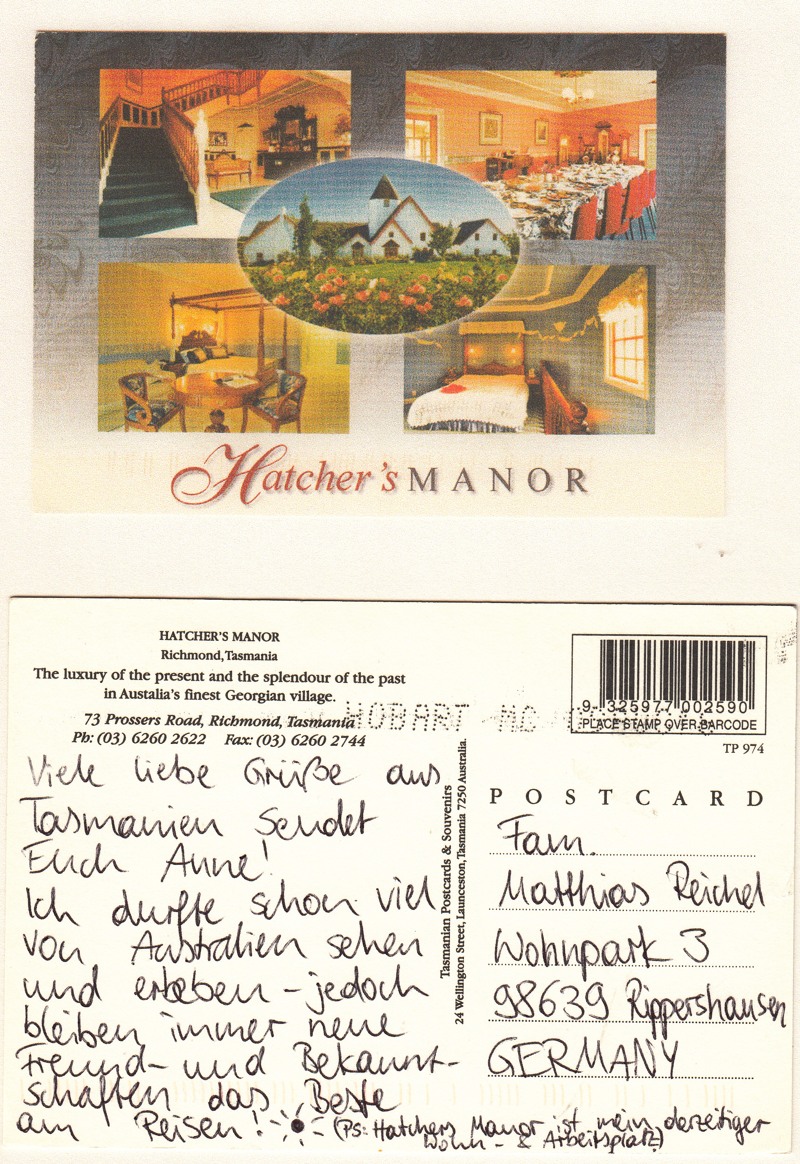 Hatcher's MANOR
HATCHER'S MANOR
Richmond, Tasmania
The luxury of the present and the splendour of the past
in Austalia's finest Georgian village.
73 Prossers Road, Richmond, Tasmania
Ph: (03) 6260 2622 Fax: (03) 6260 2744
HOBART MC
9 325977 002590
PLACE STAMP OVER BARCODE
TP 974
Viele liebe Grüße aus
Tasmanien sendet
Euch Anne!
Ich durfte schon viel
von Australien sehen
und erleben - jedoch
bleiben immer neue
Freund- und Bekannt-
schaften das Beste
am Reisen!
(PS: Hatchers Manor ist mein derzeitiger
Wohn- & Arbeitsplatz)
Tasmanian Postcards & Souvenirs
24 Wellington Street, Launceston, Tasmania 7250 Australia.
POSTCARD
Fam.
Matthias Reichel
Wohnpark 3
98639 Rippershausen
GERMANY